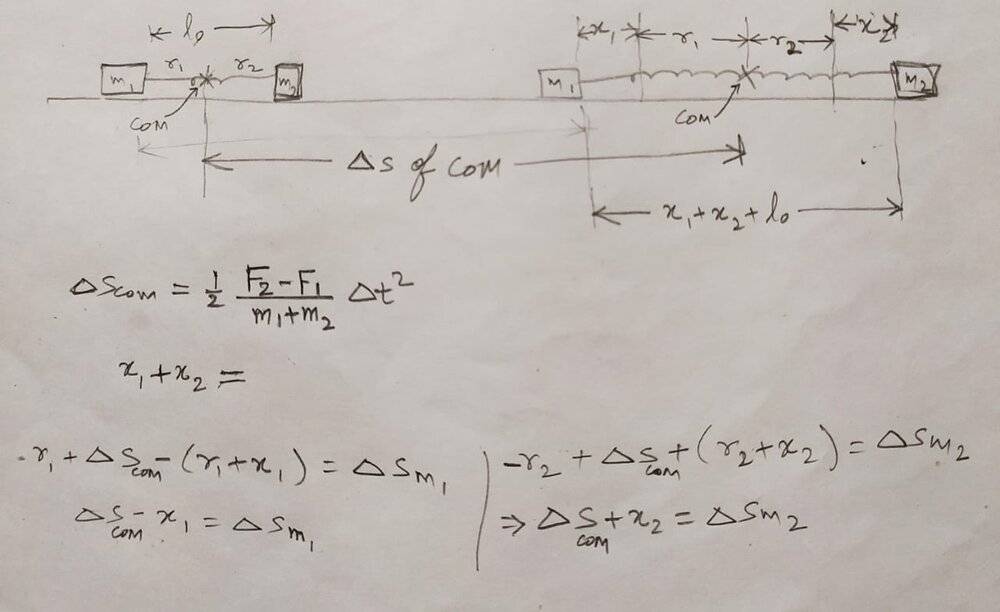 l₀
x₁ r₁ r₂ x₂
m₁ r₁ r₂ m₂
m₁ m₂
COM COM
Δs of COM
x₁+x₂+l₀
ΔS_COM = 1/2 (F₂-F₁)/(m₁+m₂) Δt²
x₁+x₂ =
-r₁ + ΔS_COM - (r₁+x₁) = ΔS_m₁
-r₂ + ΔS_COM + (r₂+x₂) = ΔS_m₂
ΔS_COM - x₁ = ΔS_m₁
⇒ ΔS_COM + x₂ = ΔS_m₂